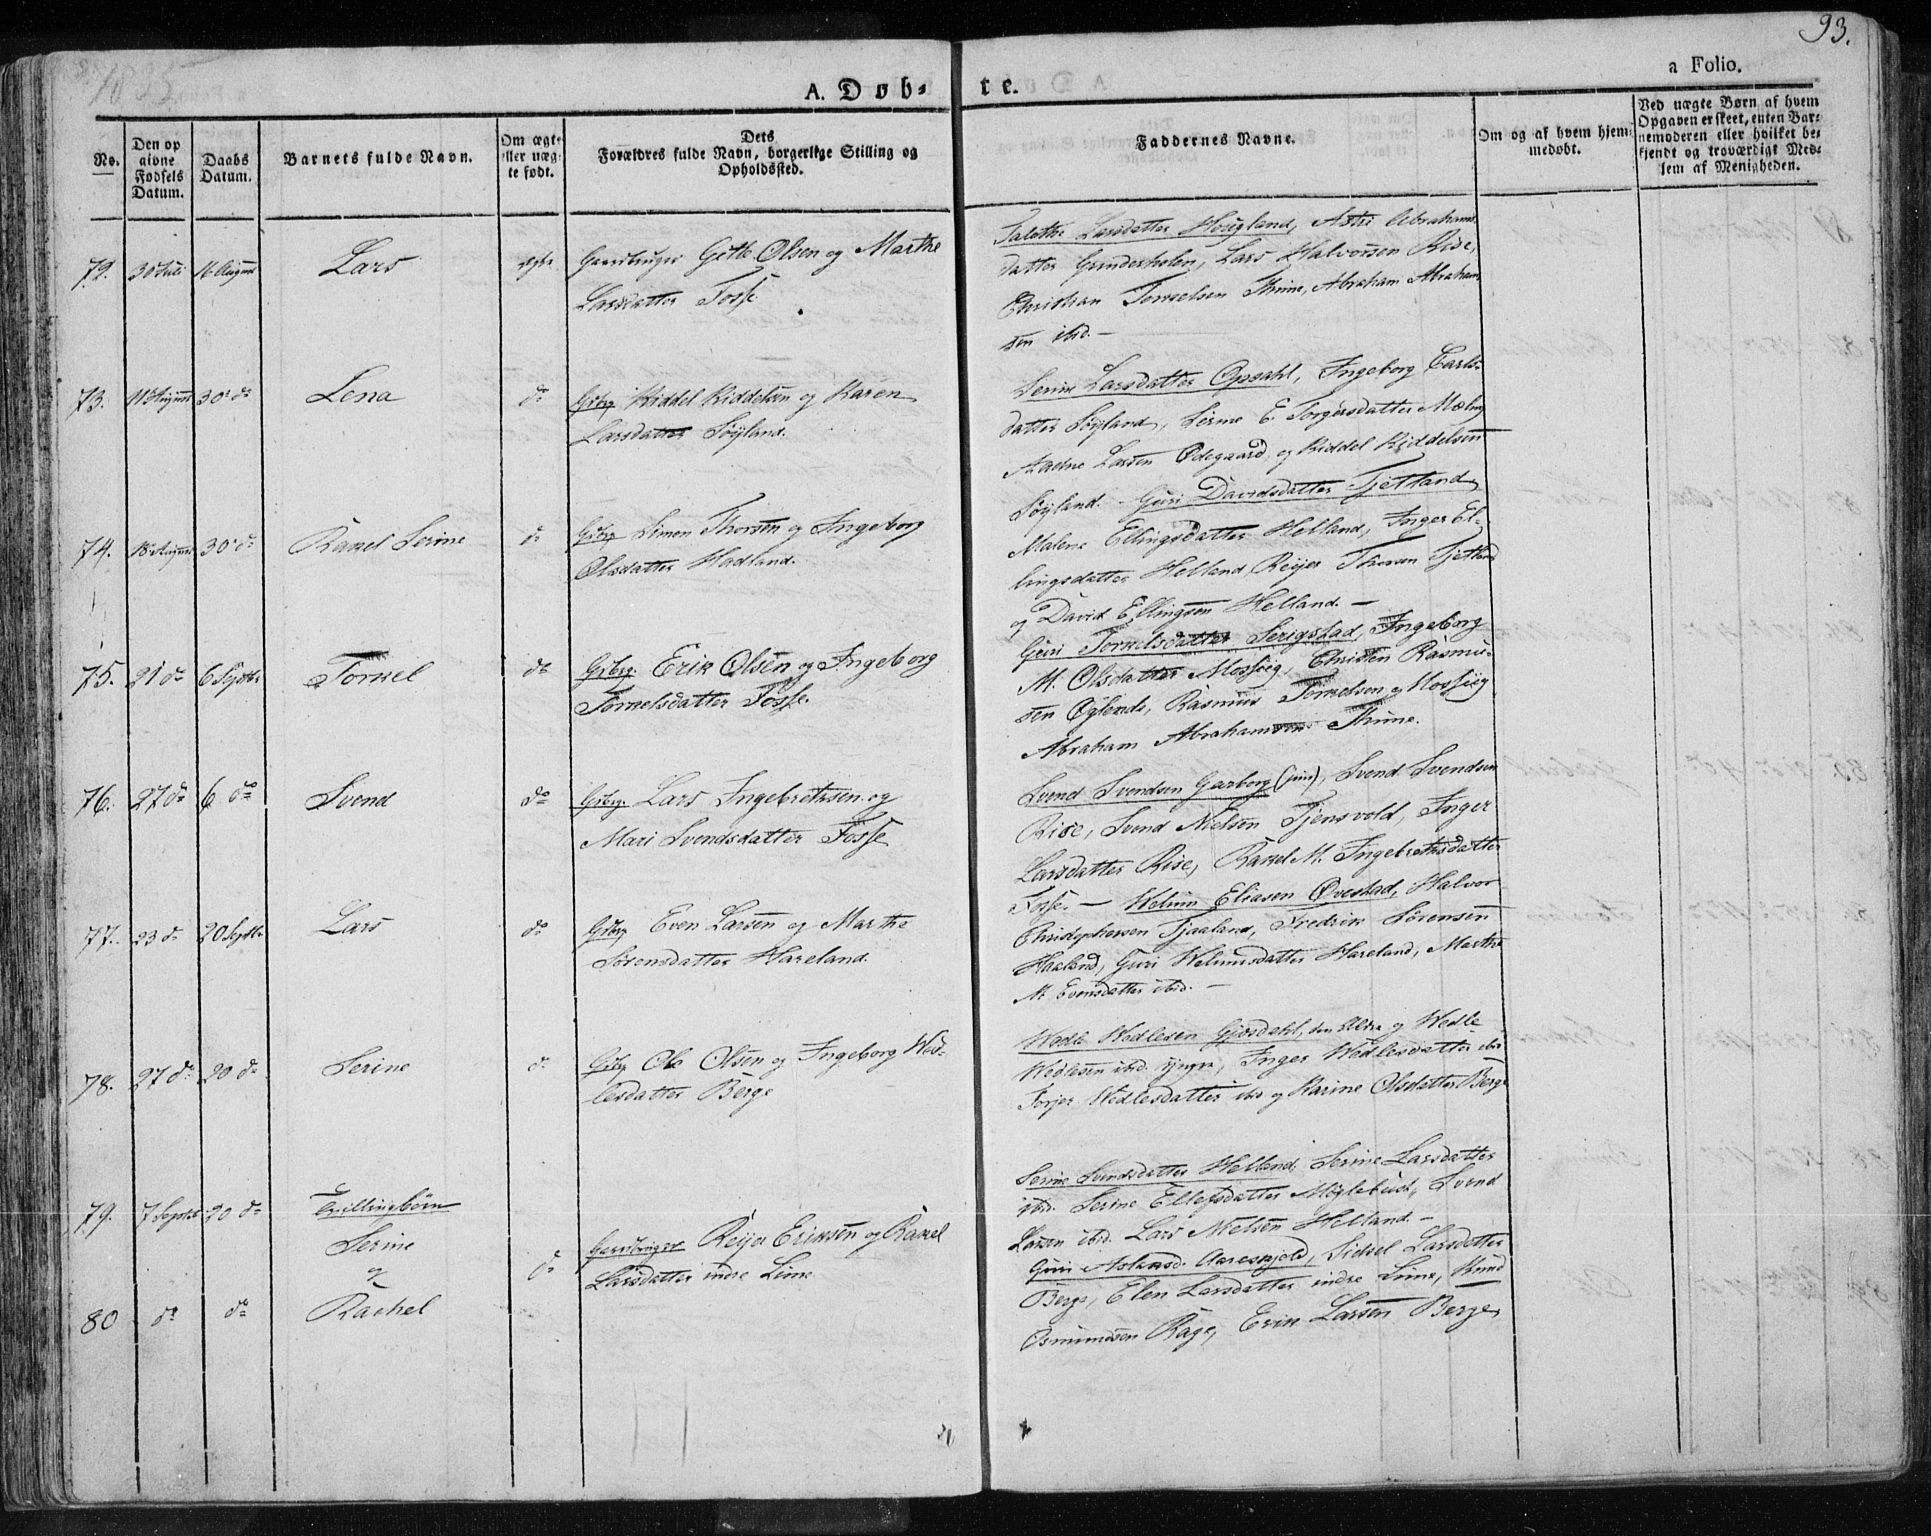 93.
1835
A. Døb-
te.
a Folio.
No.
Den op
givne
Fødsels
Datum.
Daabs
Datum.
Barnets fulde Navn.
Om ægte
eller uæg-
te født.
Dets
Forældres fulde Navn, borgerlige Stilling og
Opholdssted.
Faddernes Navne.
Om og af hvem hjem-
medøbt.
Ved uægte Børn af hvem
Opgaven er skeet, enten Bar-
nemoderen eller hvilket be-
kjendt og troværdigt Med-
lem af Menigheden.
72. 30 Juli 16 August Lars ægte Gaardbruger Gitle Olsen og Marthe
Larsdatter Fosse
Larsdatter Hougland, Astri Abrahams
datter Grunderholen, Lars Halvorsen Rise,
Christian Torkelsen Thime, Abraham Abraham
sen ibid. —
73. 11 August 30 do Lena do Grbrg Kiddel Kiddelsen og Karen
Larsdatter Søyland.
Serine Larsdatter Opsahl, Ingeborg Carls-
datter Søyland, Serine E. Torgersdatter Mæling
Aadne Larsen Ødegaard, og Kiddel Kiddelsen
Søyland. -
74. 18 August 30 do Rakel Serine do Grbrg Simon Thorsen og Ingeborg
Olsdatter Hadland.
Guri Davidsdatter Tjetland
Malene Ellingsdatter Helland, Inger El-
lingsdatter Helland, Reijer Thorsen Tjetland
og David Ellingsen Helland. —
75. 21 do 6 Septbr Torkel do Grbrg. Erik Olsen og Ingeborg
Torkelsdatter Fosse.
Guri Torkelsdatter Serigstad, Ingeborg
M. Olsdatter Mossige, Christen Rasmu-
sen Øglende, Rasmus Torkelsen Mossige
Abraham Abrahamsen Thime.
76. 27 do 6 do Svend do Grbrg. Lars Ingebrethsen og
Mari Svendsdatter Fosse
Svend Svendsen Garborg (jun), Svend Svendsen
Rise, Svend Nielsen Tjensvold, Inger
Larsdatter Rise, Rakel M. Ingebrethsdatter
Fosse. —
77. 23 do 20 Septbr Lars do Grbrg Even Larsen og Marthe
Sørensdatter Hareland.
Eliasen Ovestad, Halvor
Christophersen Tjaaland, Fredrik Sørensen
Haaland, Guri Hareland, Marthe
M. Evensdatter ibid. —
78. 27 do 20 do Serine do Grbrg Ole Olsen og Ingeborg Wed-
lesdatter Berge
Wedle Wedlesen Gjesdahl, den Ældre og Wedle
Wedlesen ibid. yngre, Inger Wedlesdatter ibid
Torjer Wedlesdatter ibid og Karine Olsdatter Berge
79. 7 Septbr 20 do Tvillingbørn
Serine
og
80 do do Rachel
do Gaardbruger Reijer Eriksen og Rakel
Larsdatter indre Lime
Serine Svendsdatter Helland, Serine Larsdatter
ibid. Serine Ellefsdatter Møglebust, Svend
Larsen ibid. Lars Nielsen Helland. —
Guri Aslaksd. Aareskjold, Sidsel Larsdatter
Berge, Elen Larsdatter indre Lime, Knud
Osmundsen Rage, Erik Larsen Berge